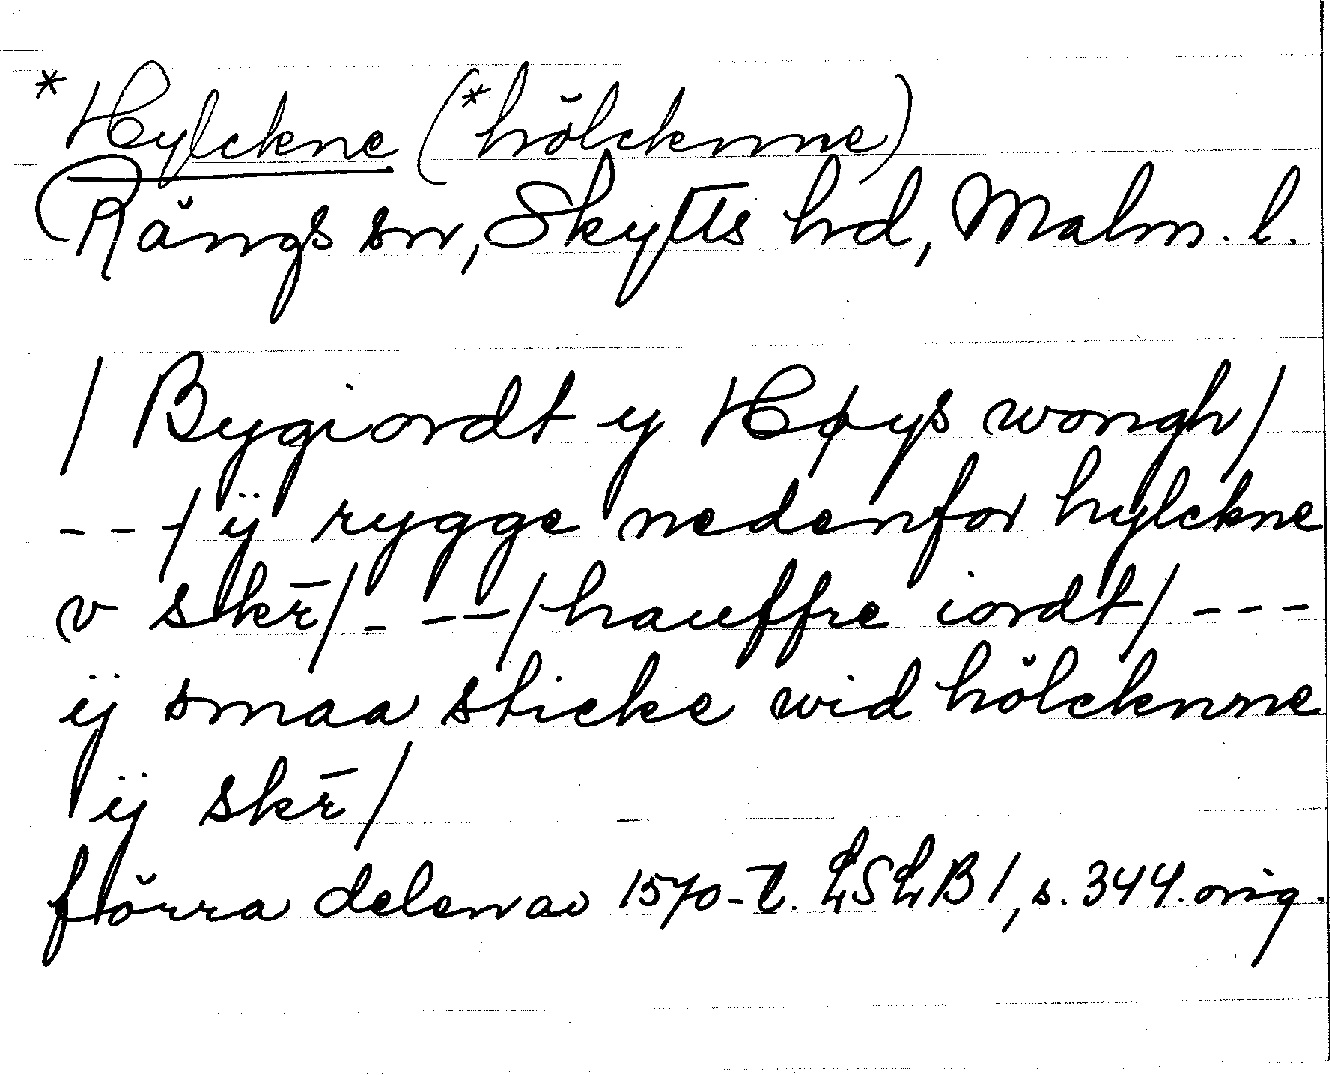 *Hylckne (*hölcknne)
Rängs sn, Skytts hd, Malm. l.
/ Bygiordt y Høys wongh/
- - -/ ÿ rygge nedenfor hylckne
v skr̄/- - -/hauffre iordt/ - - -
ÿ smaa sticke wid hölcknne
ÿ skr̄/
förra delen av 1570-t. LSLB 1, s. 344. orig.